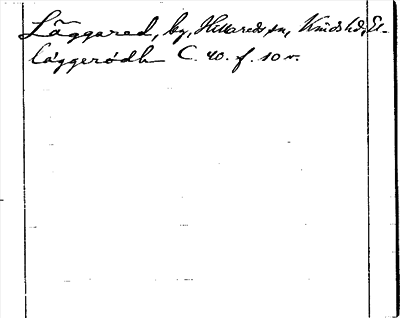 Läggared, by, Hillareds sn, Kinds hd, El-
läggerödh C. 40. f. 10 v.